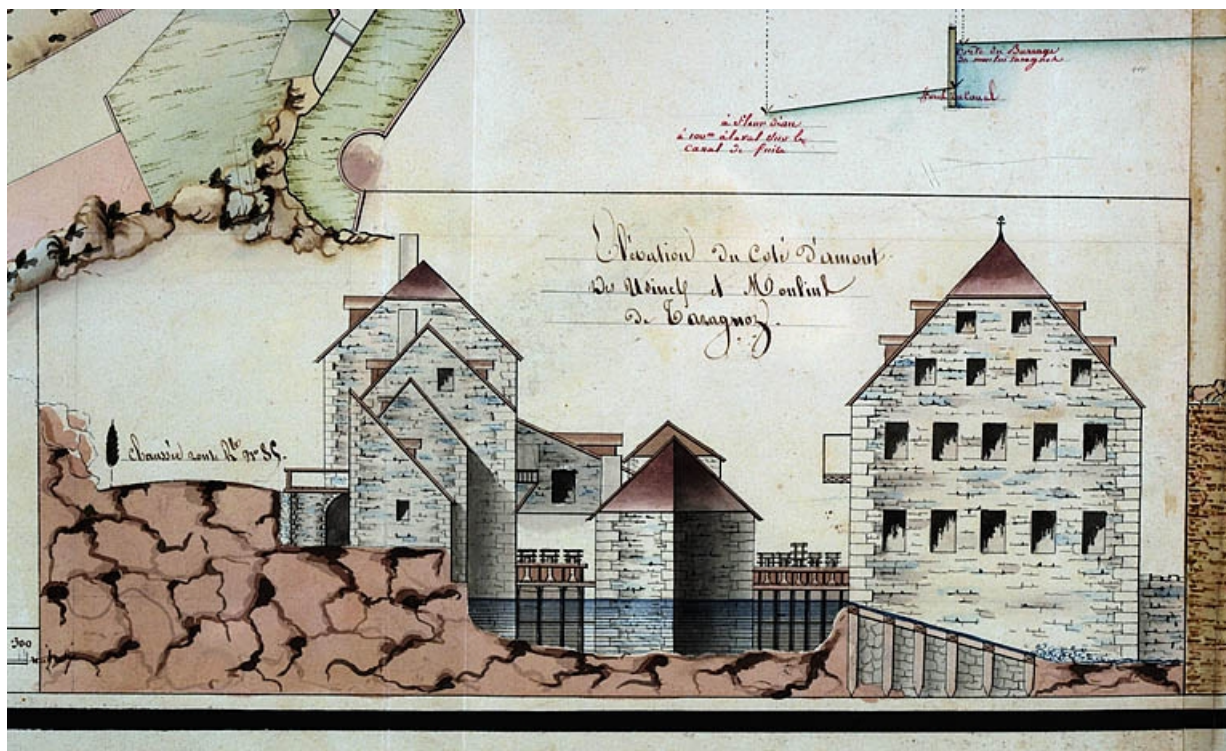 Porte du Barrage
du moulin taragnoz
fond du Canal
à fleur d'eau
à 100m à l'aval sur le
Canal de fuite
Élévation du Coté d'amont
Des Usines et Moulins
de Taragnoz.
Chaussée route Rle no 85.
300